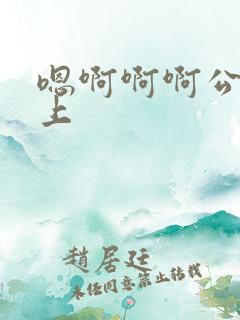 嗯啊啊啊公
上
趙居廷
未经同意禁止转载